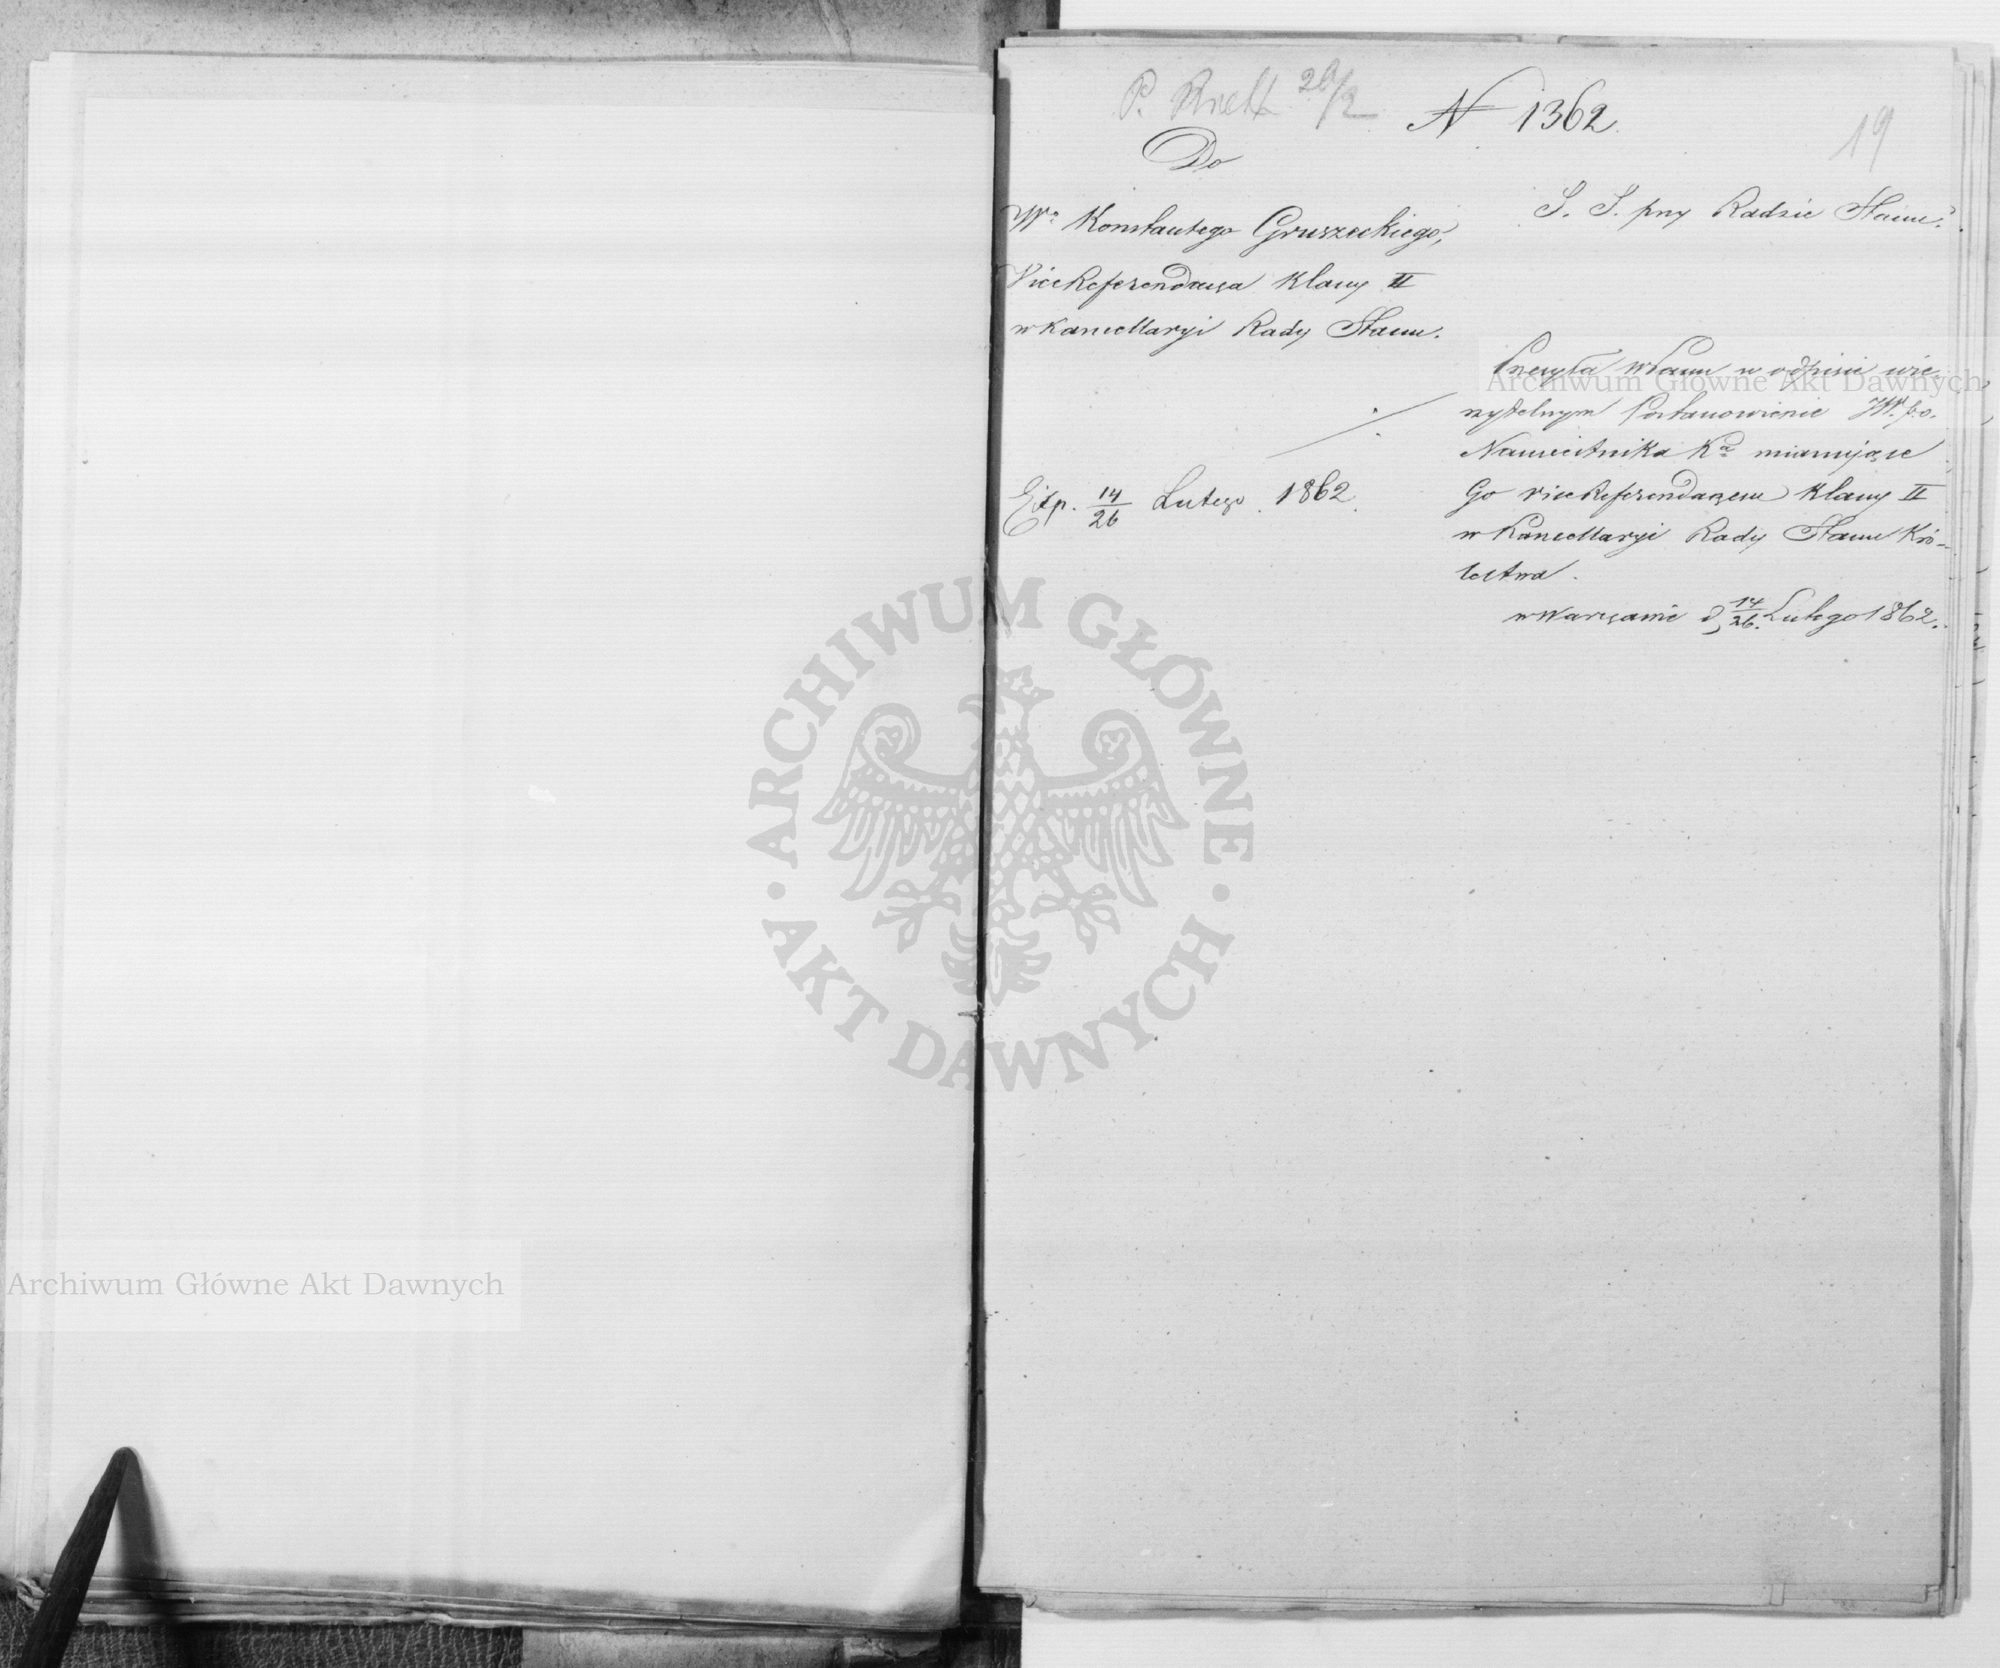 P. 26/2 N 1362.
19
Do
Wo Konstantego Gruszeckiego,
ViceReferendarza Klassy II
w Kancellaryi Rady Stanu.
Exp. 14/26 Lutego 1862.
S. S. przy Radzie Stanu.
Przesyła WPanu w odpisie wie-
rzytelnym Postanowienie JW. p.o.
Namiestnika Ka mianujące
Go ViceReferendarzem Klassy II
w Kancellaryi Rady Stanu Kró-
lestwa.
w Warszawie d. 14/26. Lutego 1862.
Archiwum Główne Akt Dawnych
ARCHIWUM GŁÓWNE · AKT DAWNYCH ·
Archiwum Główne Akt Dawnych